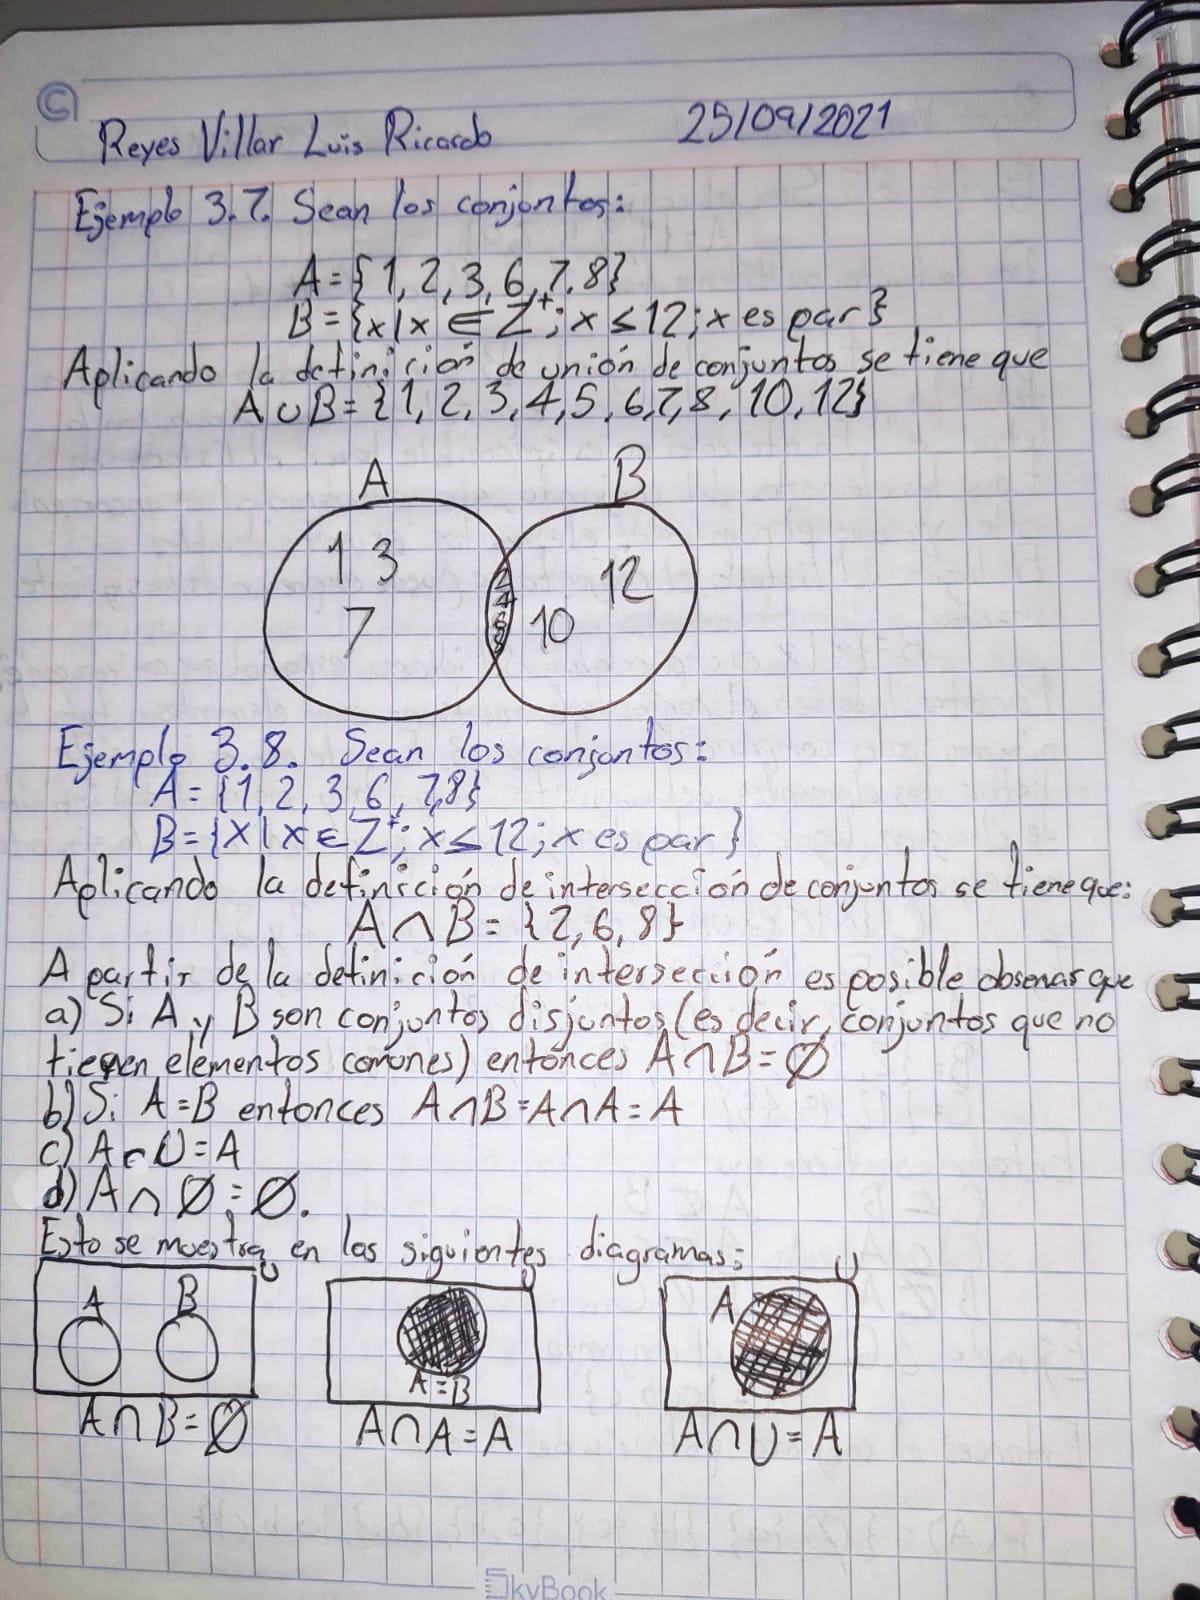 Reyes Villar Luis Ricardo 25/09/2021
Ejemplo 3.7. Sean los conjuntos:
A={1, 2, 3, 6, 7, 8}
B={x|x ∈ Z⁺; x ≤ 12; x es par}
Aplicando la definición de unión de conjuntos se tiene que
A ∪ B = {1, 2, 3, 4, 5, 6, 7, 8, 10, 12}
A B
1 3
12
7 10
Ejemplo 3.8. Sean los conjuntos:
A = {1, 2, 3, 6, 7, 8}
B = {x|x ∈ Z⁺; x ≤ 12; x es par}
Aplicando la definición de intersección de conjuntos se tiene que:
A ∩ B = {2, 6, 8}
A partir de la definición de intersección es posible observar que
a) Si A y B son conjuntos disjuntos (es decir, conjuntos que no
tienen elementos comunes) entonces A ∩ B = ∅
b) Si A = B entonces A ∩ B = A ∩ A = A
c) A ∩ U = A
d) A ∩ ∅ = ∅.
Esto se muestra en los siguientes diagramas:
U U U
A B A
A = B
A ∩ B = ∅ A ∩ A = A A ∩ U = A
SkyBook